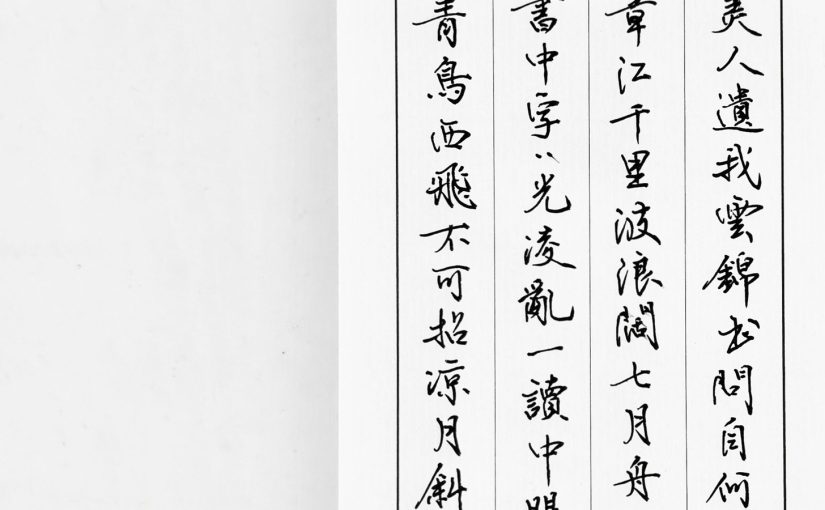 美人遺我雲錦書問自何
章江千里波浪闊七月舟
書中字〻光凌亂一讀中
青鳥西飛不可招凉月斜